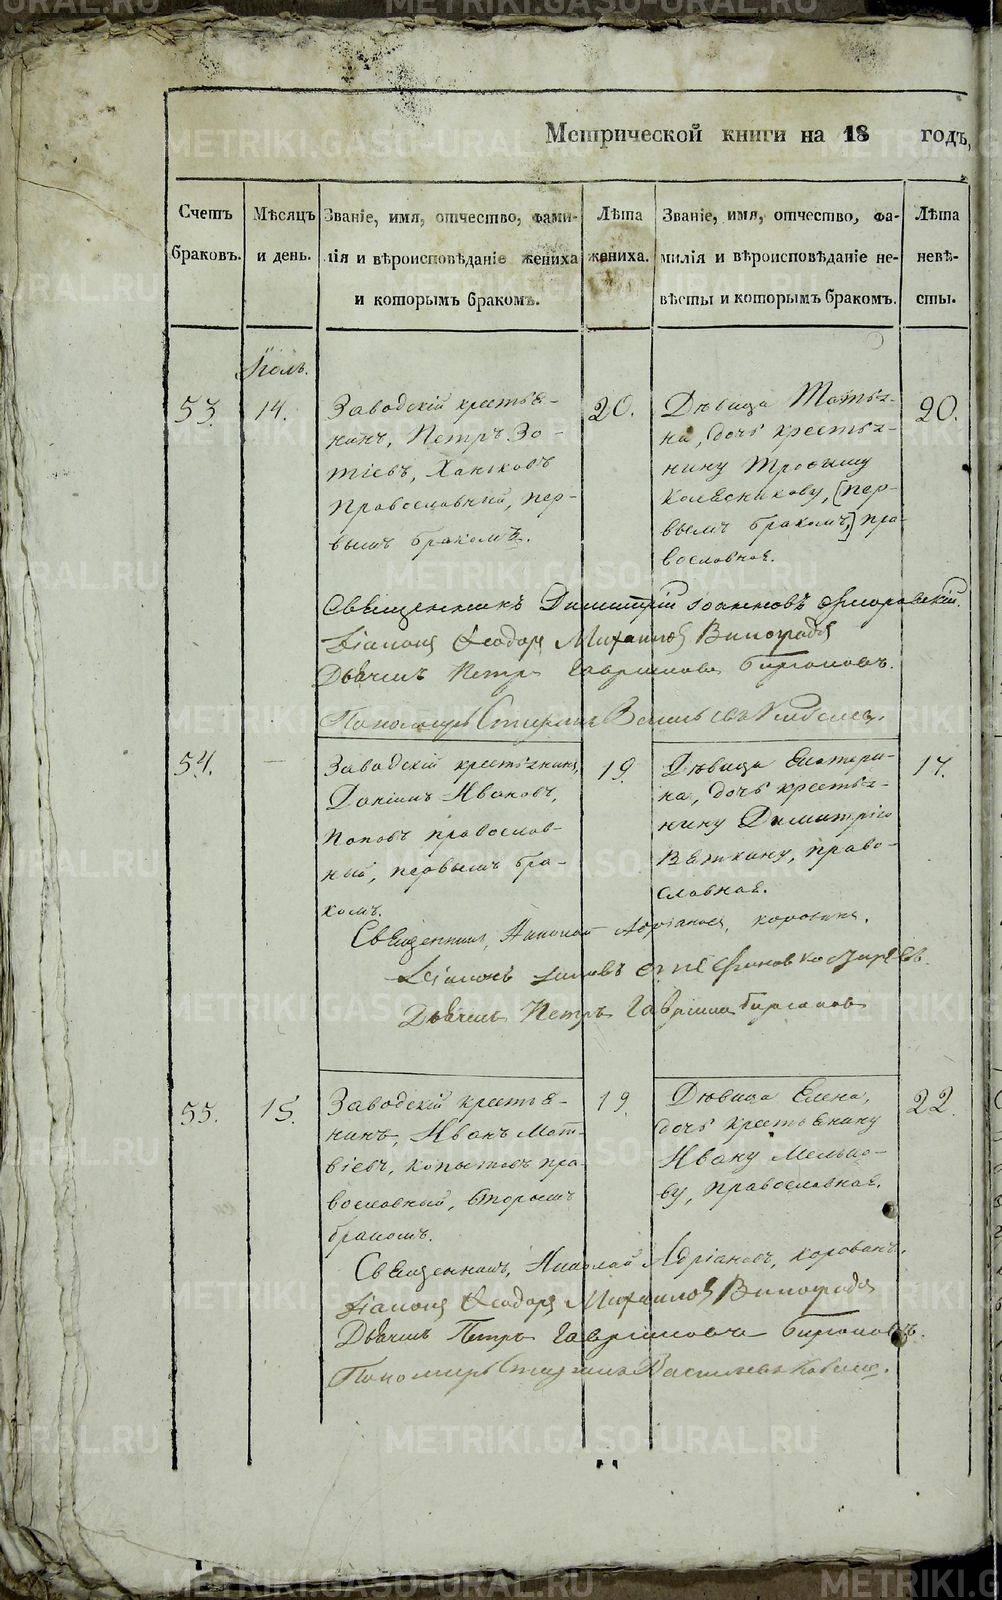 Метрической книги на 18 годъ,
Счетъ браковъ.
Мѣсяцъ и день.
Званіе, имя, отчество, фами-
лія и вѣроисповѣданіе жениха
и которымъ бракомъ.
Лѣта жениха.
Званіе, имя, отчество, фа-
милія и вѣроисповѣданіе не-
вѣсты и которымъ бракомъ.
Лѣта невѣ-
сты.
Іюль.
53.
14.
Заводскій крестья-
нинъ, Петръ Зо-
тіевъ, Ханжовъ
Православный, пер-
вымъ бракомъ.
20.
Дѣвица Татья-
на, дочь крестья-
нину Трофиму
Колесникову, [пер-
вымъ бракомъ,] пра-
вославная.
20.
Священникъ Димитрій Іоанновъ
Діаконъ Ѳеодоръ Михайловъ Виноградов
Дьячекъ Петръ Гавриловъ Бирюковъ.
Пономарь Васильевъ
54.
—
Заводскій крестьянинъ,
Даніилъ Ивановъ,
Поповъ православ-
ный, первымъ бра-
комъ.
19.
Дѣвица Екатери-
на, дочь крестья-
нину Димитрію
Вяткину, право-
славная.
17.
Священникъ, Николай Адріановъ, Коровинъ.
Діаконъ
Дьячекъ Петръ Гавриловъ Бирюковъ
55.
15.
Заводскій крестья-
нинъ, Иванъ Мат-
вієвъ, Копытовъ пра-
вославный, вторымъ
бракомъ.
19.
Дѣвица Елена,
дочь крестьянину
Ивану Мелько-
ву, православная.
22.
Священникъ, Николай Адріановъ, Коровинъ.
Діаконъ Ѳеодоръ Михайловъ Виноградов
Дьячекъ Петръ Гавриловъ Бирюковъ.
Пономарь Васильевъ
METRIKI.GASO-URAL.RU